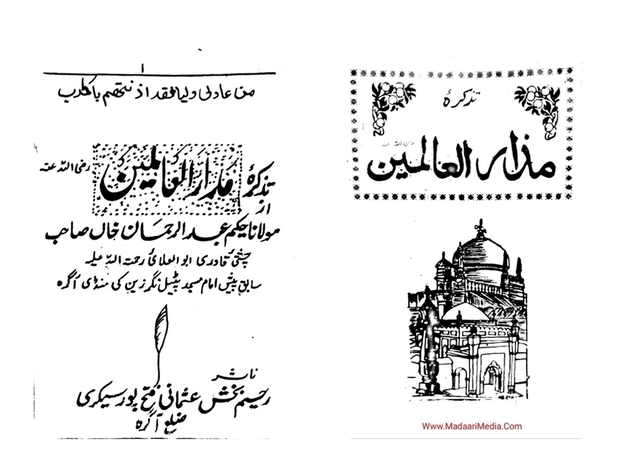 تذکرۂ
مدار العالمین
www.MadaariMedia.Com
۱
من عادلی ولیا فقد اذنتهم باکرب
تذکرۂ مدار العالمین رضی اللہ عنہ
از
مولانا حکیم عبدالرحمان خاں صاحب
چشتی قادری ابوالعلائی رحمتہ اللہ علیہ
سابق پیش امام مسجد پٹیل نگر زین کی منڈی آگرہ
ناشر
رحیم بخش عثمانی فتح پور سیکری
ضلع آگرہ